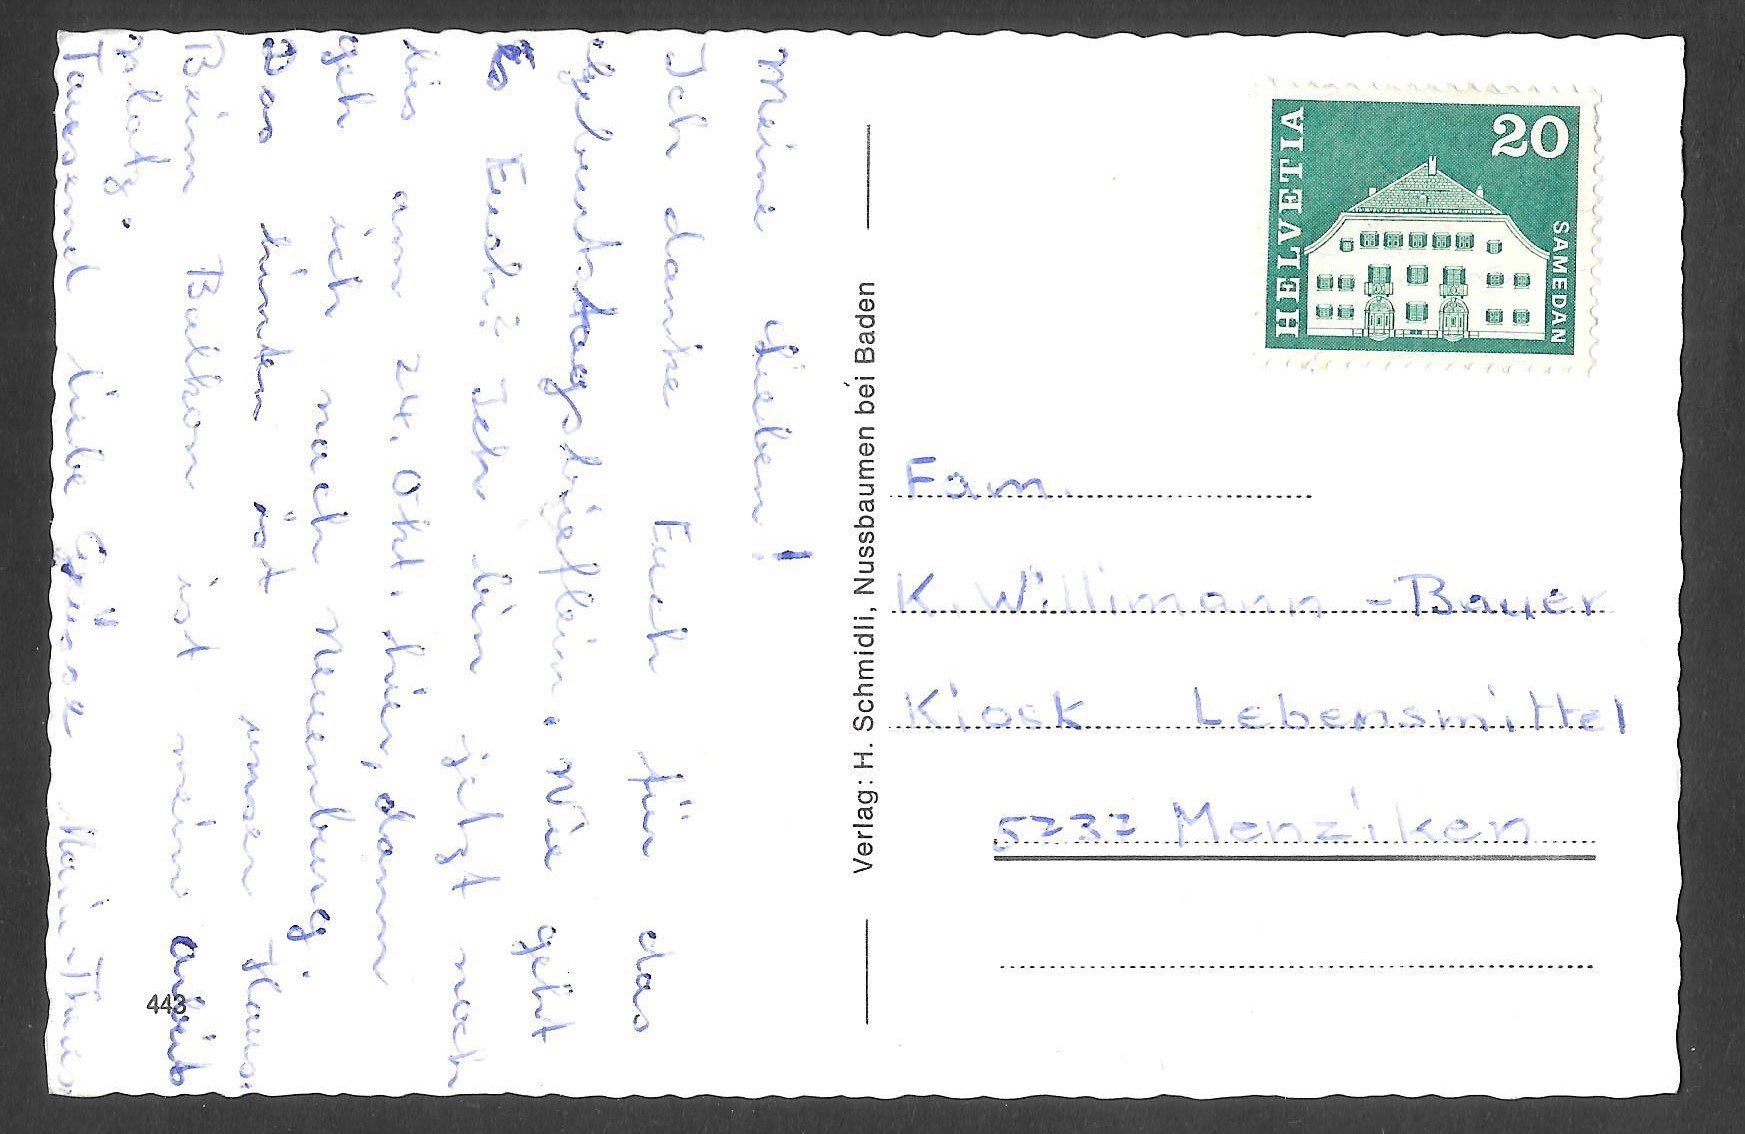 Meine Lieben!
Ich danke Euch für das
Geburtstagsbrieflein. Wie geht
es Euch? Ich bin jetzt noch
bis am 24. Okt. hier, dann
geh ich nach Neuenburg.
Das hinten ist unser Haus.
Beim Balkon ist mein Arbeits
platz.
Tausend liebe Grüsse Marie-Theres
443
Verlag: H. Schmidli, Nussbaumen bei Baden
HELVETIA
20
SAMEDAN
Fam.
K. Willimann-Bauer
Kiosk Lebensmittel
5737 Menziken